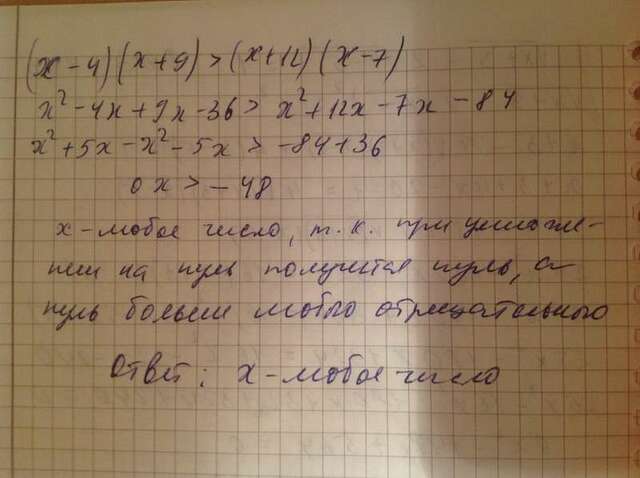 (x-4)(x+9)>(x+12)(x-7)
x²-4x+9x-36> x²+12x-7x-84
x²+5x-x²-5x > -84+36
0x>-48
x-любое число, т.к. при умноже-
нии на нуль получится нуль, а
нуль больше любого отрицательного
Ответ: x-любое число